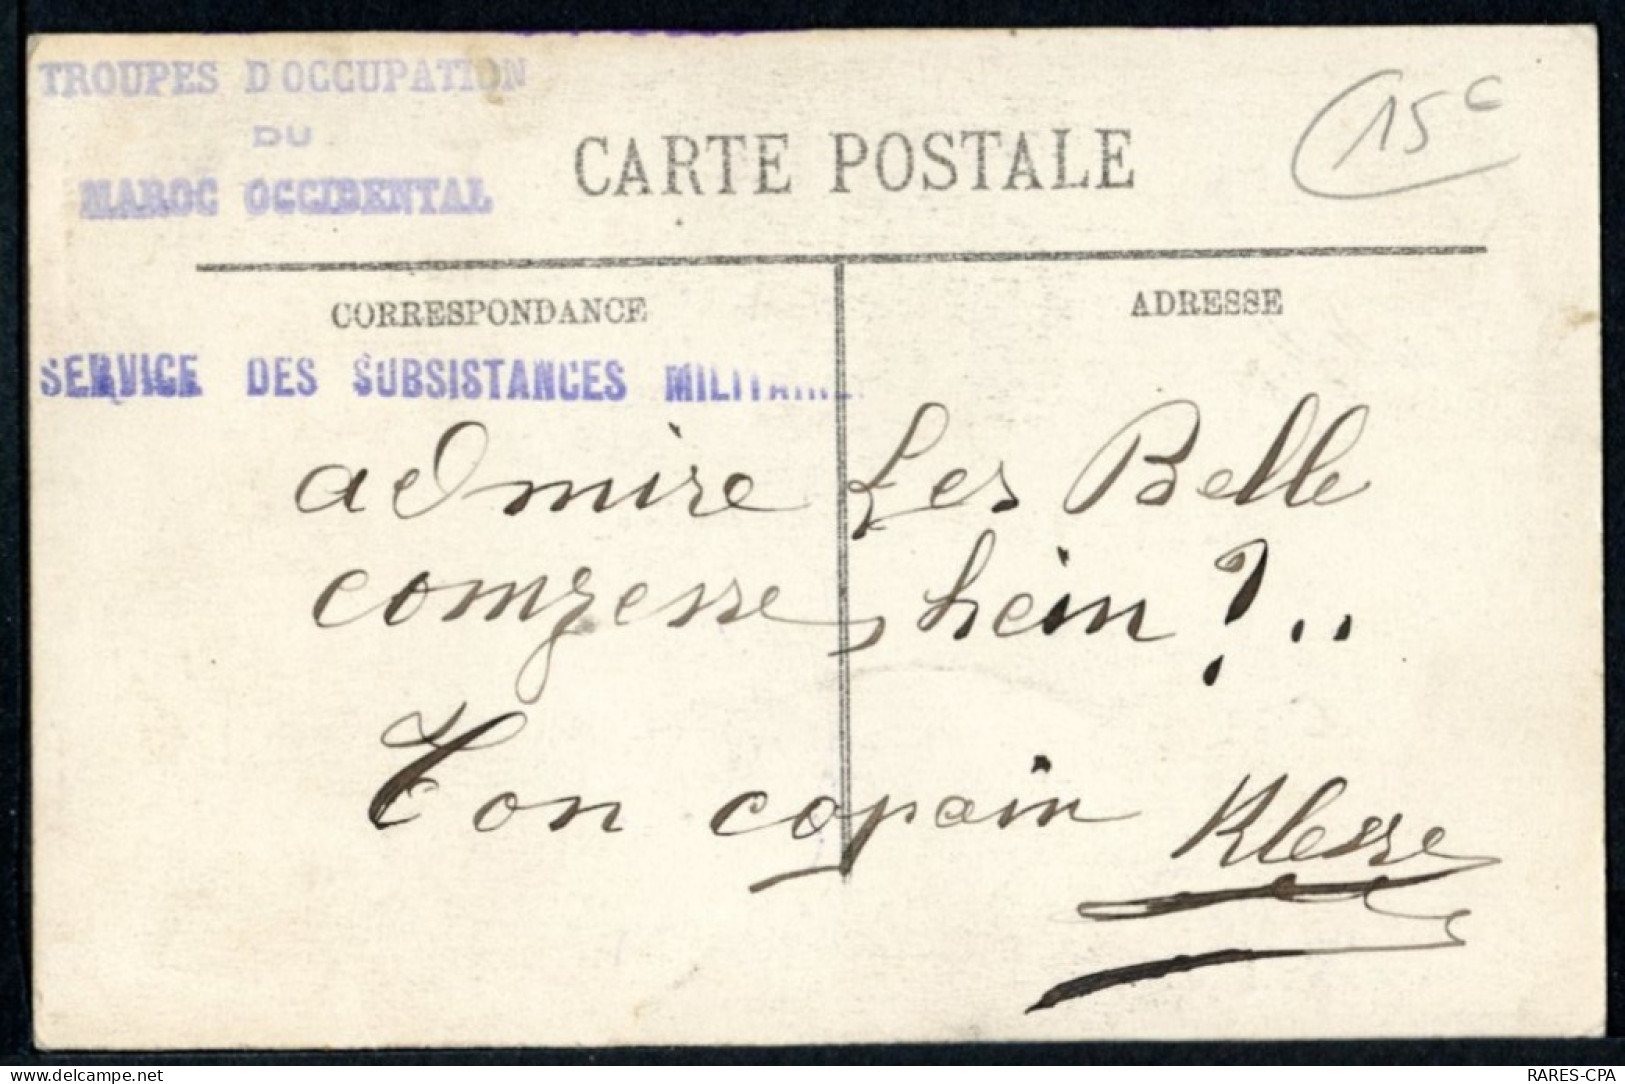 TROUPES D'OCCUPATION
DU
MAROC OCCIDENTAL
CARTE POSTALE
15 c
CORRESPONDANCE
ADRESSE
SERVICE DES SUBSISTANCES MILITAIRE
admire Les Belle
comgesse, hein ?..
Ton copain Klesse
RARES-CPA